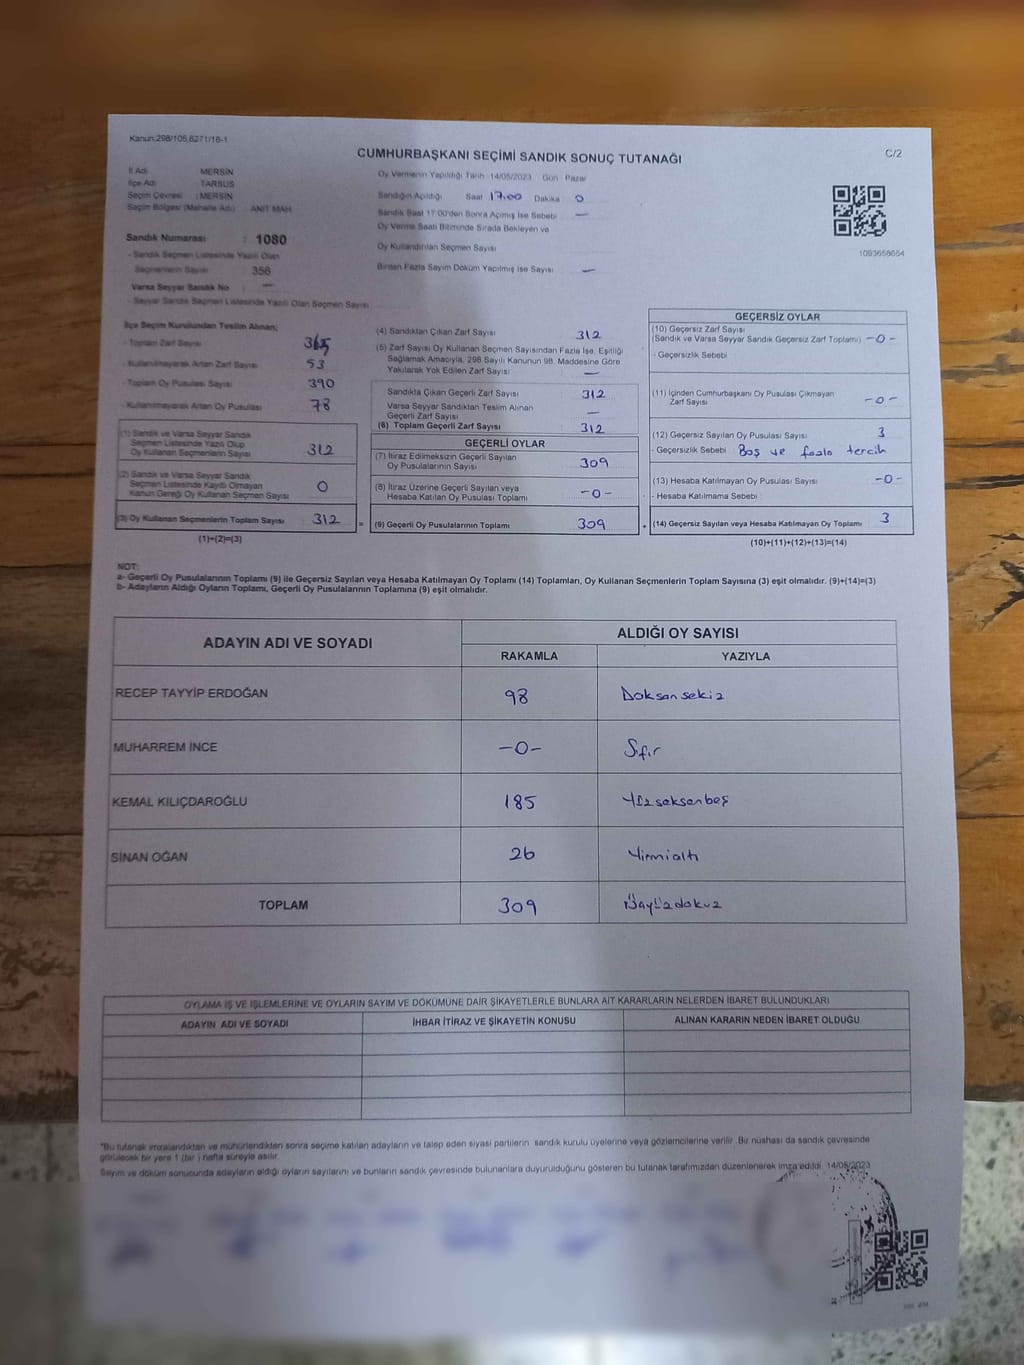 Kanun:298/105,6271/18-1
C/2
CUMHURBAŞKANI SEÇİMİ SANDIK SONUÇ TUTANAĞI
İl Adı : MERSİN
İlçe Adı : TARSUS
Seçim Çevresi : MERSİN
Seçim Bölgesi (Mahalle Adı) : ANIT MAH
Oy Vermenin Yapıldığı Tarih 14/05/2023 Gün Pazar
Sandığın Açıldığı Saat 17.00 Dakika 0
Sandık Saat 17.00'den Sonra Açılmış İse Sebebi —
Oy Verme Saati Bitiminde Sırada Bekleyen ve
Oy Kullandırılan Seçmen Sayısı
Birden Fazla Sayım Döküm Yapılmış İse Sayısı —
1093658654
Sandık Numarası : 1080
- Sandık Seçmen Listesinde Yazılı Olan
Seçmenlerin Sayısı 356
Varsa Seyyar Sandık No : —
- Seyyar Sandık Seçmen Listesinde Yazılı Olan Seçmen Sayısı
İlçe Seçim Kurulundan Teslim Alınan;
- Toplam Zarf Sayısı 365
- Kullanılmayarak Artan Zarf Sayısı 53
- Toplam Oy Pusulası Sayısı 390
- Kullanılmayarak Artan Oy Pusulası 78
(1) Sandık ve Varsa Seyyar Sandık
Seçmen Listesinde Yazılı Olup
Oy Kullanan Seçmenlerin Sayısı 312
(2) Sandık ve Varsa Seyyar Sandık
Seçmen Listesinde Kayıtlı Olmayan
Kanun Gereği Oy Kullanan Seçmen Sayısı 0
(3) Oy Kullanan Seçmenlerin Toplam Sayısı 312 =
(1)+(2)=(3)
(4) Sandıktan Çıkan Zarf Sayısı 312
(5) Zarf Sayısı Oy Kullanan Seçmen Sayısından Fazla İse, Eşitliği
Sağlamak Amacıyla, 298 Sayılı Kanunun 98. Maddesine Göre
Yakılarak Yok Edilen Zarf Sayısı —
Sandıkta Çıkan Geçerli Zarf Sayısı 312
Varsa Seyyar Sandıktan Teslim Alınan
Geçerli Zarf Sayısı —
(6) Toplam Geçerli Zarf Sayısı 312
GEÇERLİ OYLAR
(7) İtiraz Edilmeksizin Geçerli Sayılan
Oy Pusulalarının Sayısı 309
(8) İtiraz Üzerine Geçerli Sayılan veya
Hesaba Katılan Oy Pusulası Toplamı -0-
(9) Geçerli Oy Pusulalarının Toplamı 309 +
GEÇERSİZ OYLAR
(10) Geçersiz Zarf Sayısı
(Sandık ve Varsa Seyyar Sandık Geçersiz Zarf Toplamı) -0-
- Geçersizlik Sebebi
(11) İçinden Cumhurbaşkanı Oy Pusulası Çıkmayan
Zarf Sayısı -0-
(12) Geçersiz Sayılan Oy Pusulası Sayısı 3
- Geçersizlik Sebebi Boş ve fazla tercih
(13) Hesaba Katılmayan Oy Pusulası Sayısı -0-
- Hesaba Katılmama Sebebi
(14) Geçersiz Sayılan veya Hesaba Katılmayan Oy Toplamı 3
(10)+(11)+(12)+(13)=(14)
NOT:
a- Geçerli Oy Pusulalarının Toplamı (9) ile Geçersiz Sayılan veya Hesaba Katılmayan Oy Toplamı (14) Toplamları, Oy Kullanan Seçmenlerin Toplam Sayısına (3) eşit olmalıdır. (9)+(14)=(3)
b- Adayların Aldığı Oyların Toplamı, Geçerli Oy Pusulalarının Toplamına (9) eşit olmalıdır.
ADAYIN ADI VE SOYADI ALDIĞI OY SAYISI
RAKAMLA YAZIYLA
RECEP TAYYİP ERDOĞAN 98 Doksansekiz
MUHARREM İNCE -0- Sıfır
KEMAL KILIÇDAROĞLU 185 Yüzseksenbeş
SİNAN OĞAN 26 Yirmialtı
TOPLAM 309 Üçyüzdokuz
OYLAMA İŞ VE İŞLEMLERİNE VE OYLARIN SAYIM VE DÖKÜMÜNE DAİR ŞİKAYETLERLE BUNLARA AİT KARARLARIN NELERDEN İBARET BULUNDUKLARI
ADAYIN ADI VE SOYADI İHBAR İTİRAZ VE ŞİKAYETİN KONUSU ALINAN KARARIN NEDEN İBARET OLDUĞU
*Bu tutanak imzalandıktan ve mühürlendikten sonra seçime katılan adayların ve talep eden siyasi partilerin sandık kurulu üyelerine veya gözlemcilerine verilir. Bir nüshası da sandık çevresinde
görülecek bir yere 1 (bir ) hafta süreyle asılır.
Sayım ve döküm sonucunda adayların aldığı oyların sayılarını ve bunların sandık çevresinde bulunanlara duyurulduğunu gösteren bu tutanak tarafımızdan düzenlenerek imza edildi. 14/05/2023